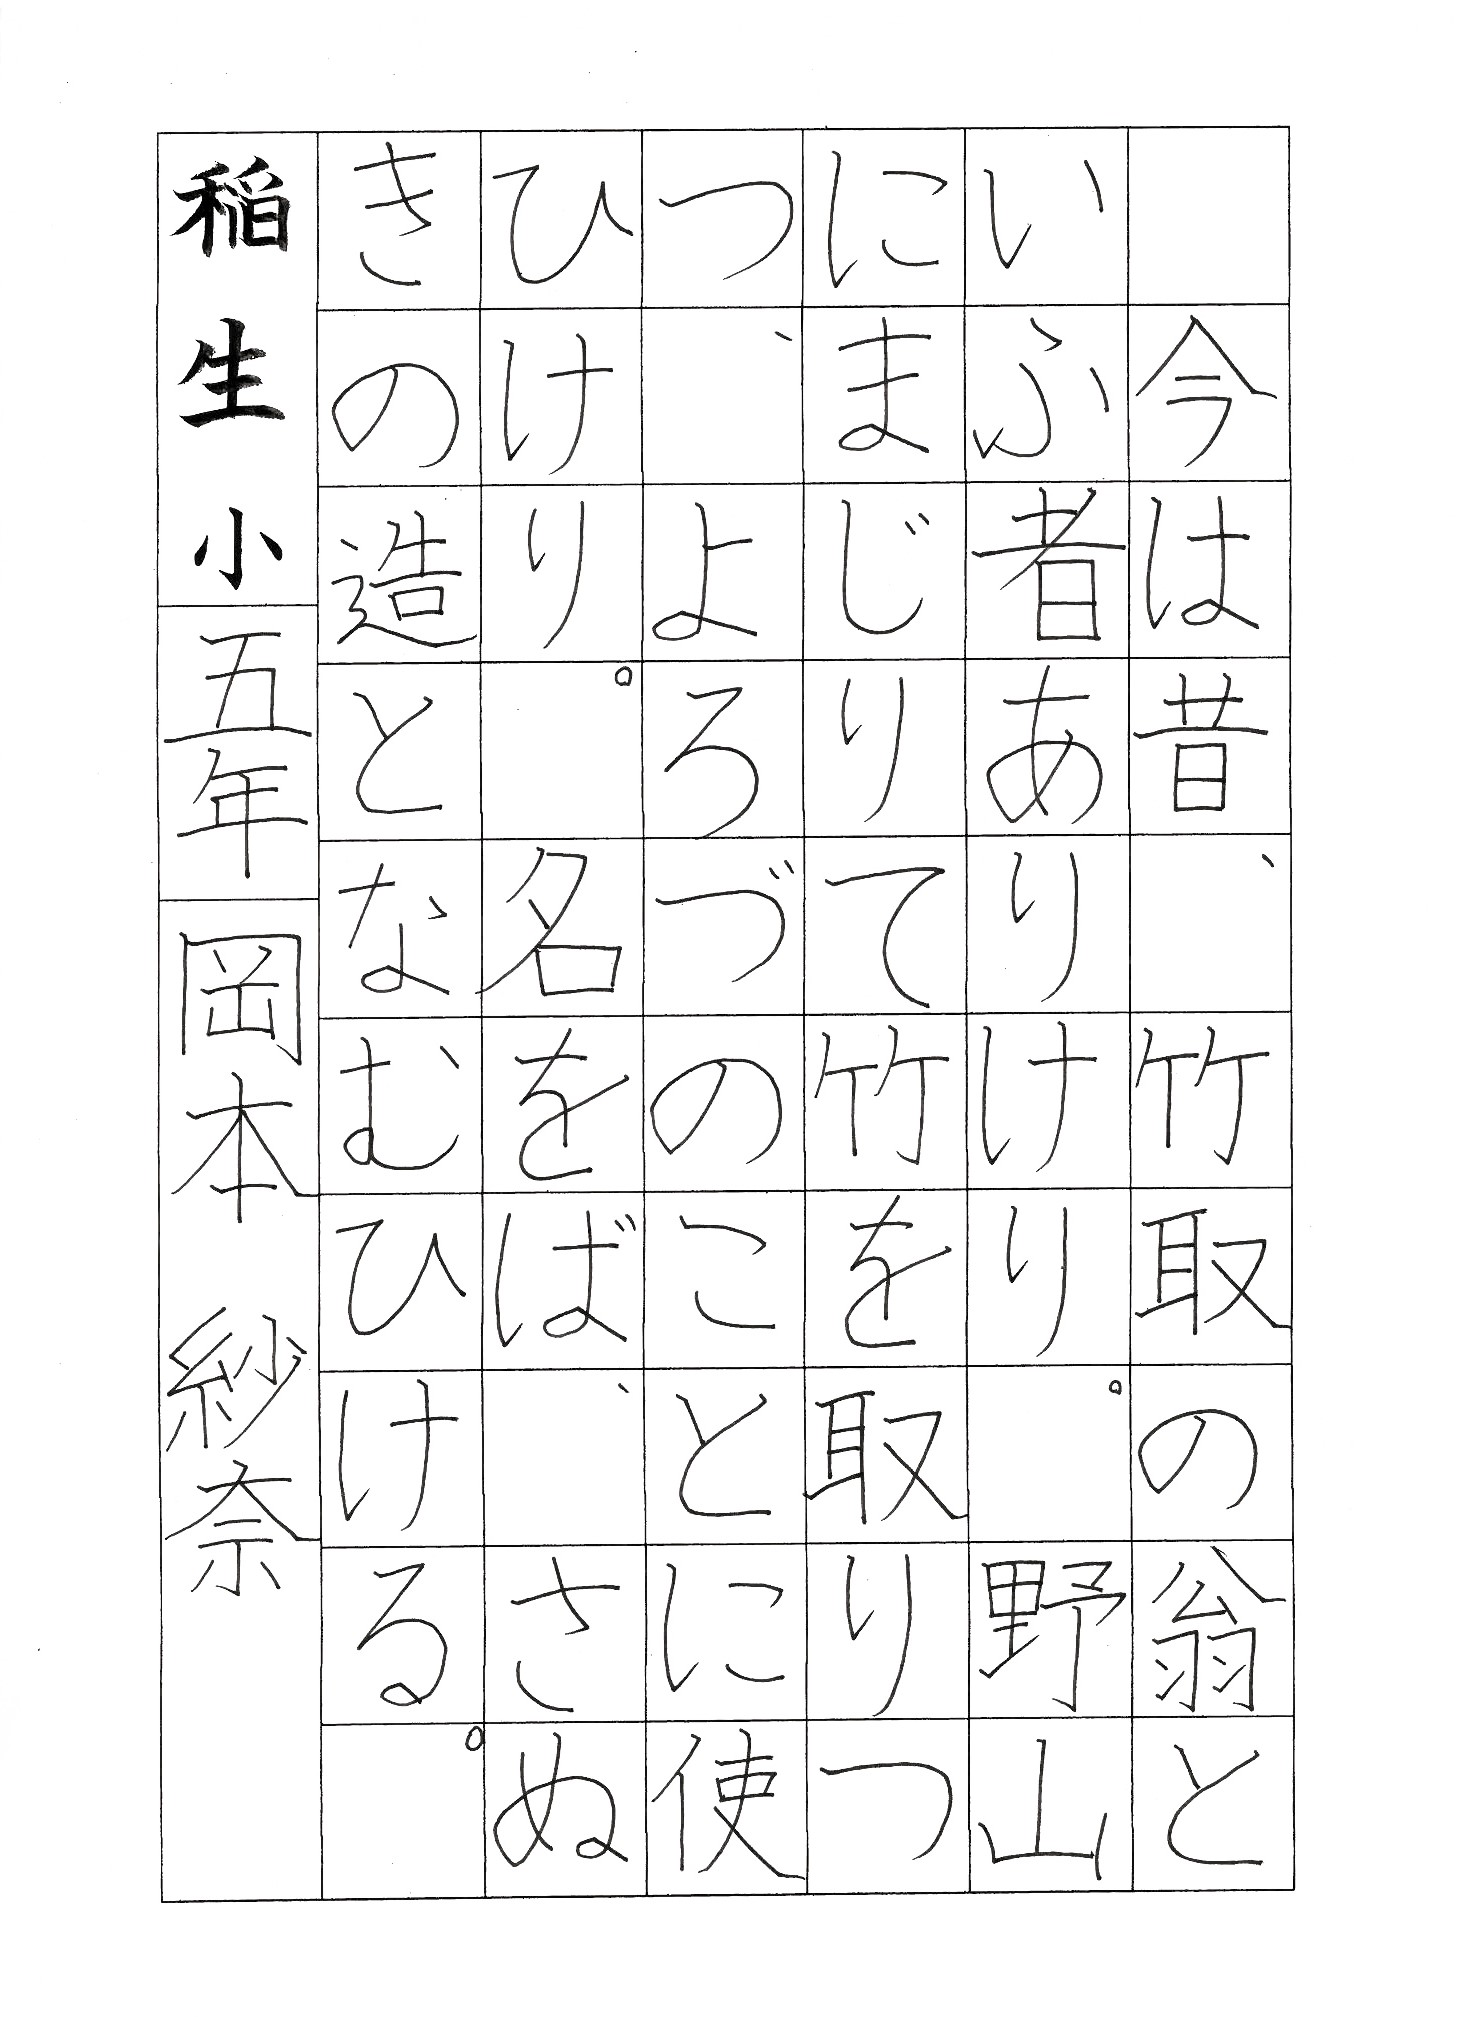 今は昔、竹取の翁と
いふ者ありけり。野山
にまじりて竹を取りつ
つ、よろづのことに使
ひけり。名をば、さぬ
きの造となむひける。
稲生小五年岡本紗奈